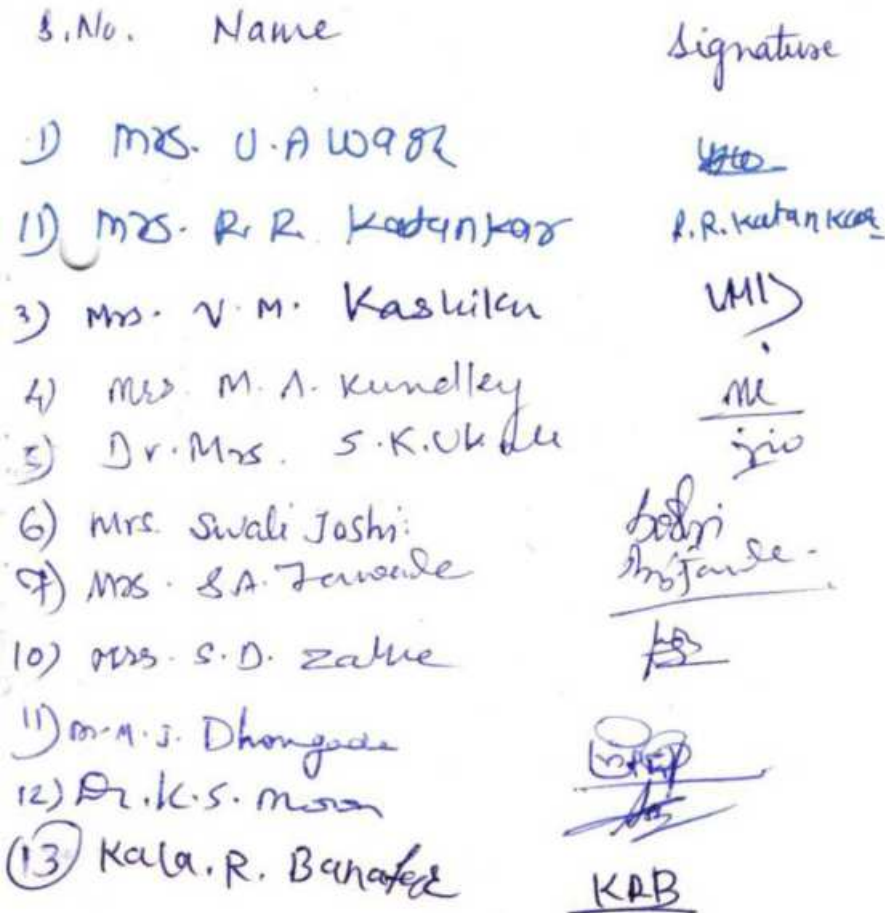 S.No. Name Signature
1) Mrs. U.A Wagh
11) Mrs. R.R. Katankar R.R. Katankar
3) Mrs. V.M. Kashikar
4) Mrs. M.A. Kundley
5) Dr. Mrs. S.K.
6) Mrs. Swati Joshi
7) Mrs. S.A.
10) Mrs. S.D. Zalke
11) M.J. Dhongade
12) Dr. K.S. Moon
13 Kala. R. KRB